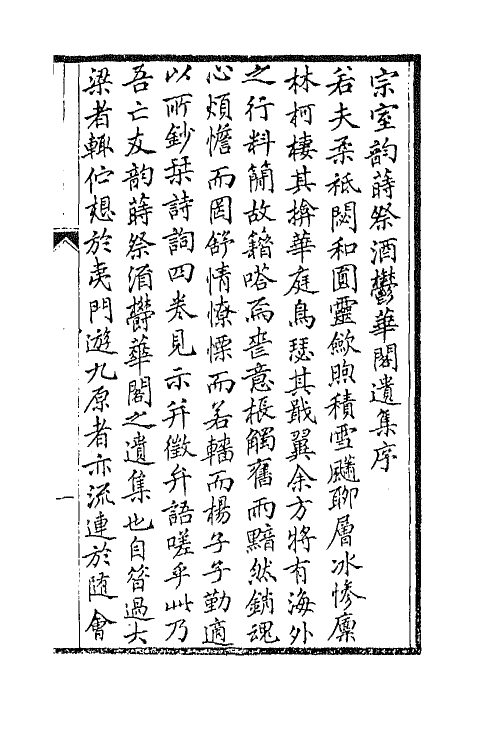 宗室韵蒔祭酒鬱華閣遺集序
若夫柔祇閟和圓靈歛煦積雪飄聊層冰慘廩
林柯棲其揜華庭鳥瑟其戢翼余方將有海外
之行料簡故籍嗒焉喪意棖觸舊雨黯然銷魂
心煩憺而罔舒情憭慄而若轖而楊子子勤適
以所鈔栞詩詞四卷見示并徵弁語嗟乎此乃
吾亡友韵蒔祭酒鬱華閣之遺集也自昔過大
梁者輒佇想於夷門遊九原者亦流連於随會
一